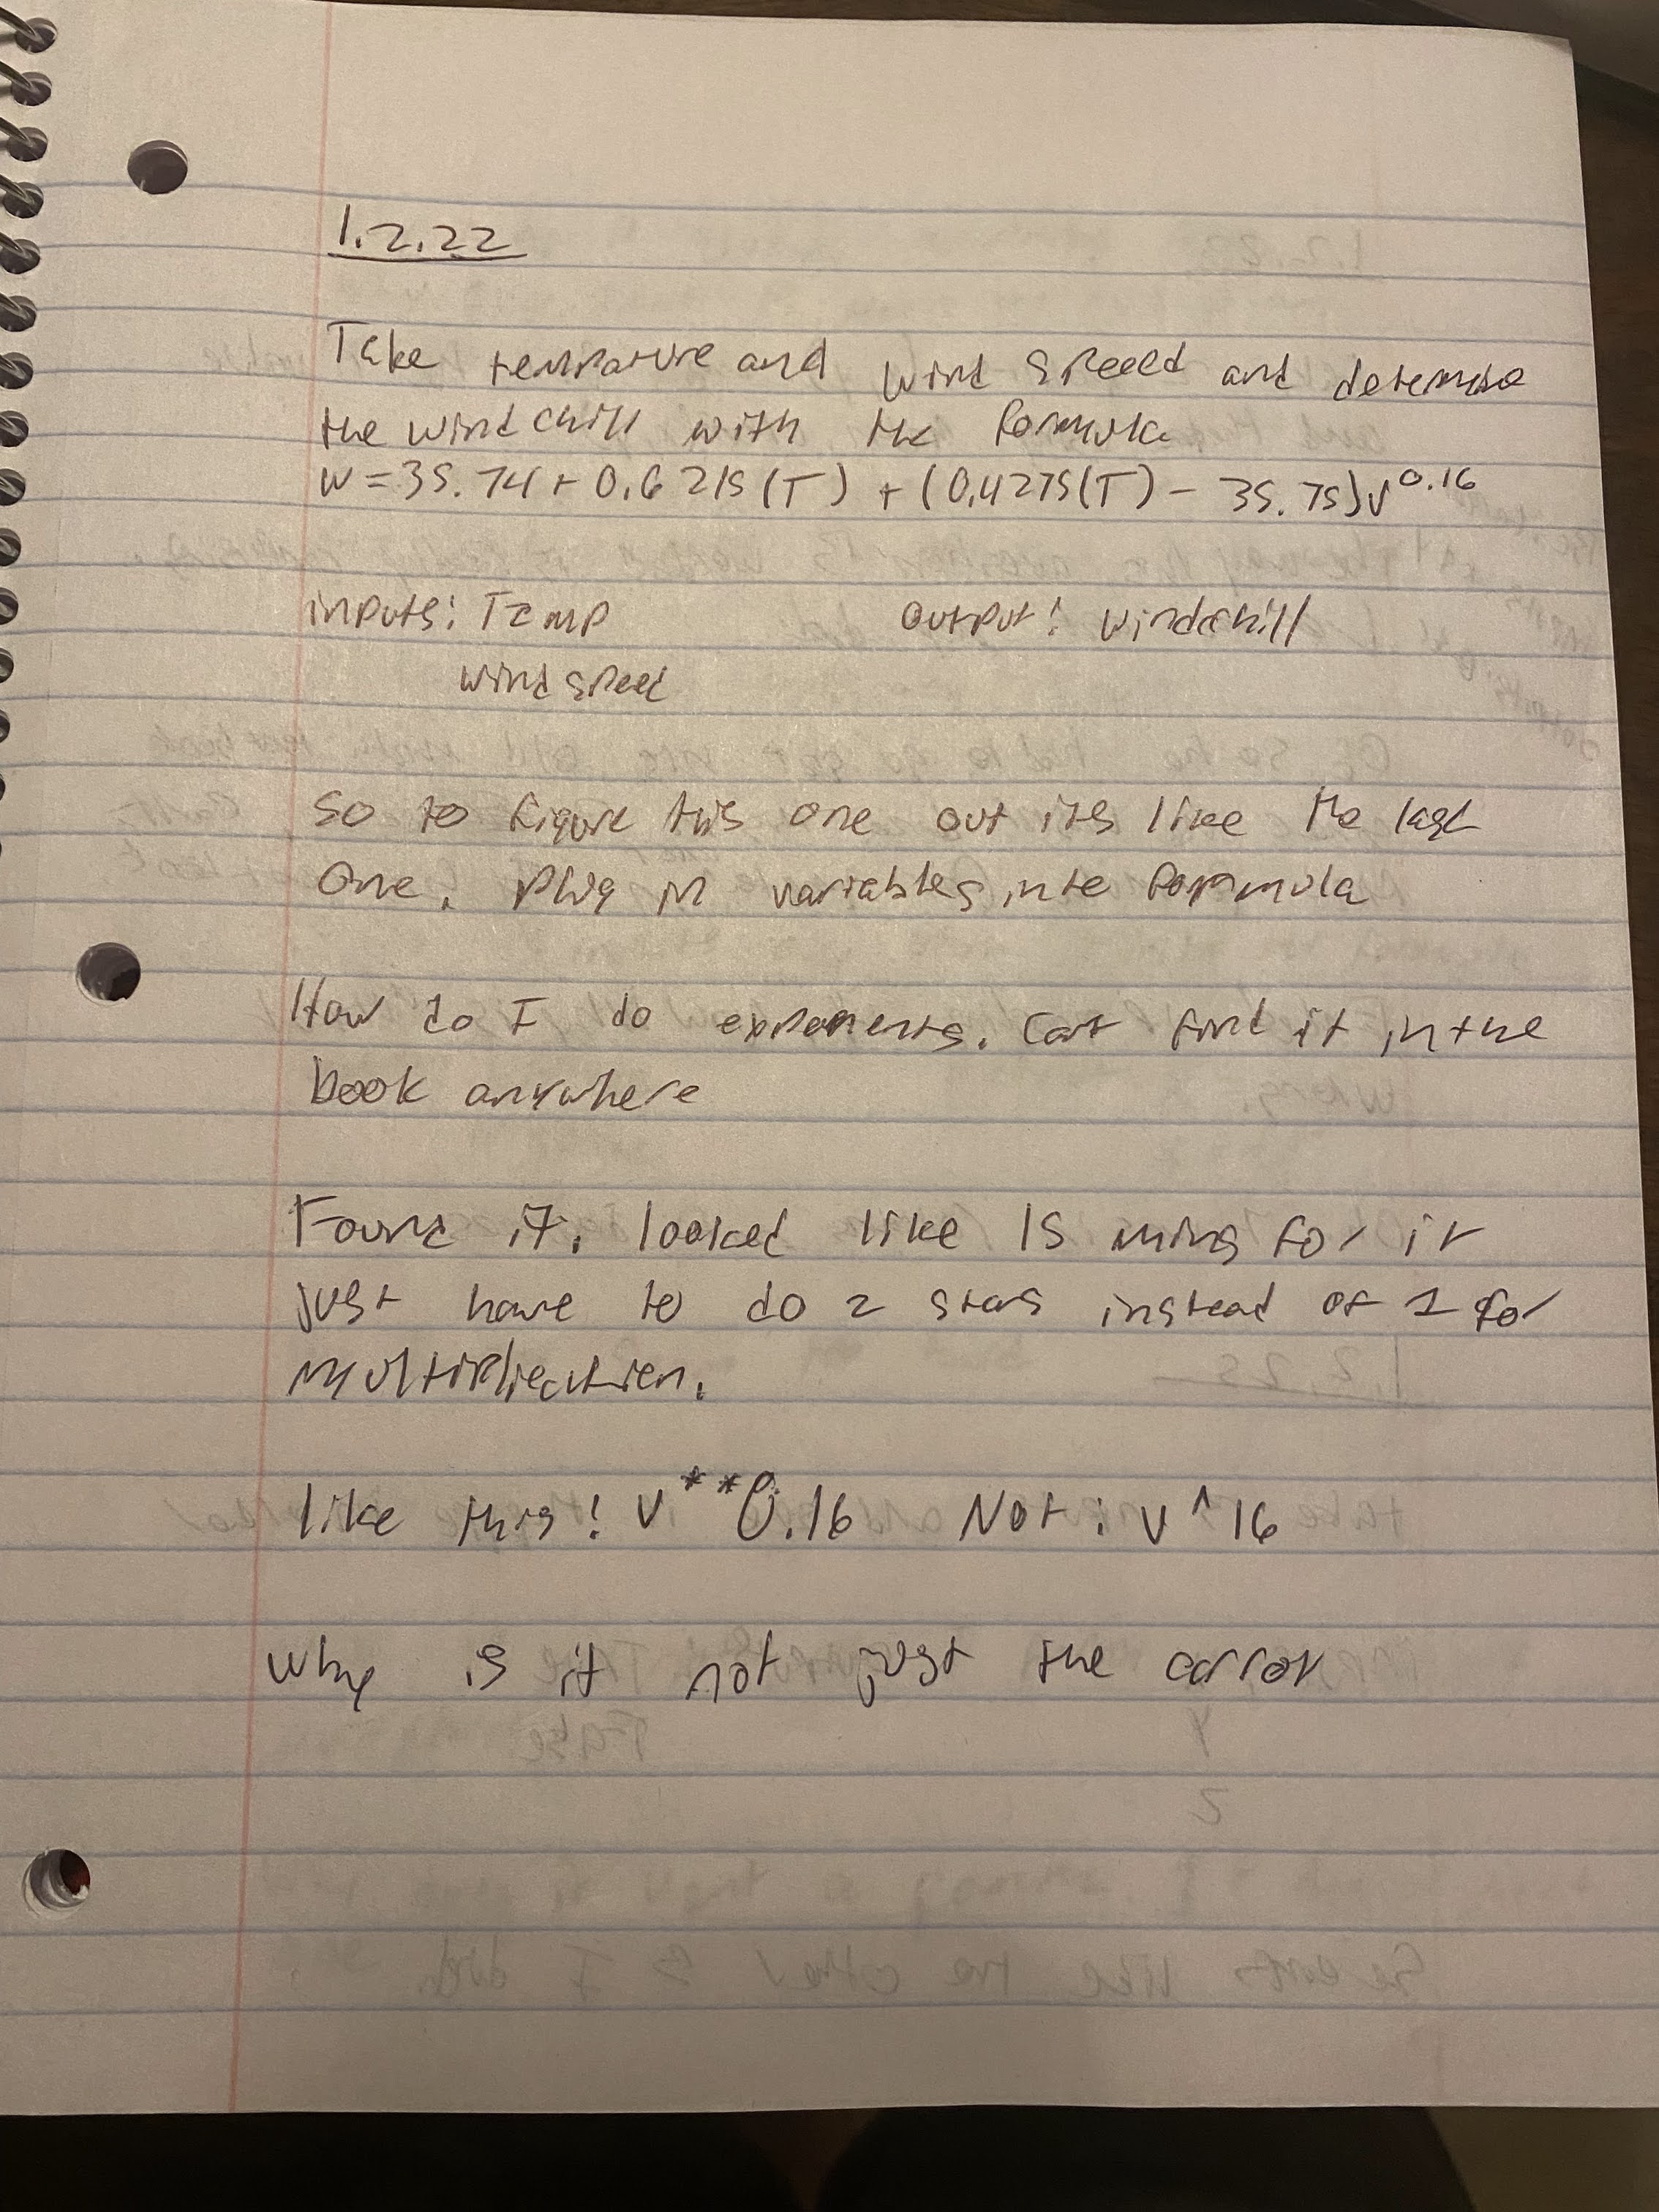 1.2.22
Take temprature and wind speed and determine
the wind chill with the formula
W = 35.74 + 0.6215(T) + (0.4275(T) - 35.75)v^0.16
inputs: Temp output: windchill
wind speed
So to figure this one out its like the last
one. Plug in variables into formula
How do I do exponents. Cant find it in the
book anywhere
Found it. looked like 15 mins for it
just have to do 2 stars instead of 1 for
multiplication.
like this: v**0.16 Not: v^16
why is it not just the arrow